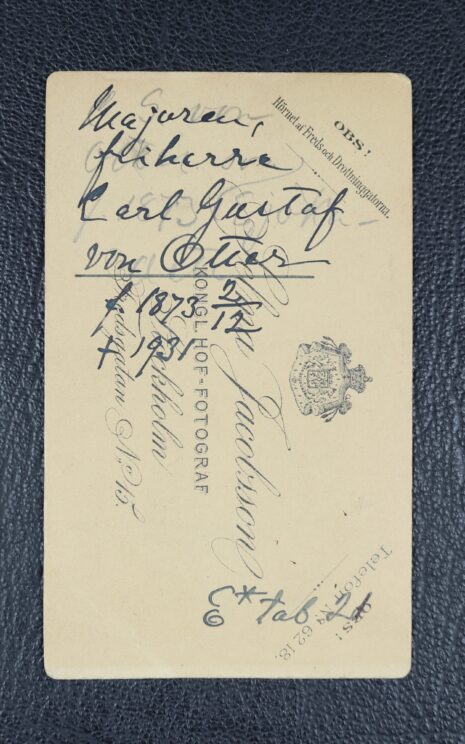 Majoren,
friherre
Carl Gustaf
von Otter
f 1873 2/12
† 1931
OBS!
Hörnet af Freds och Drottninggatorna.
Selma Jacobsson
KONGL. HOF-FOTOGRAF
Stockholm
Fredsgatan No 15.
tab 21
OBS!
Telefon No 6218.